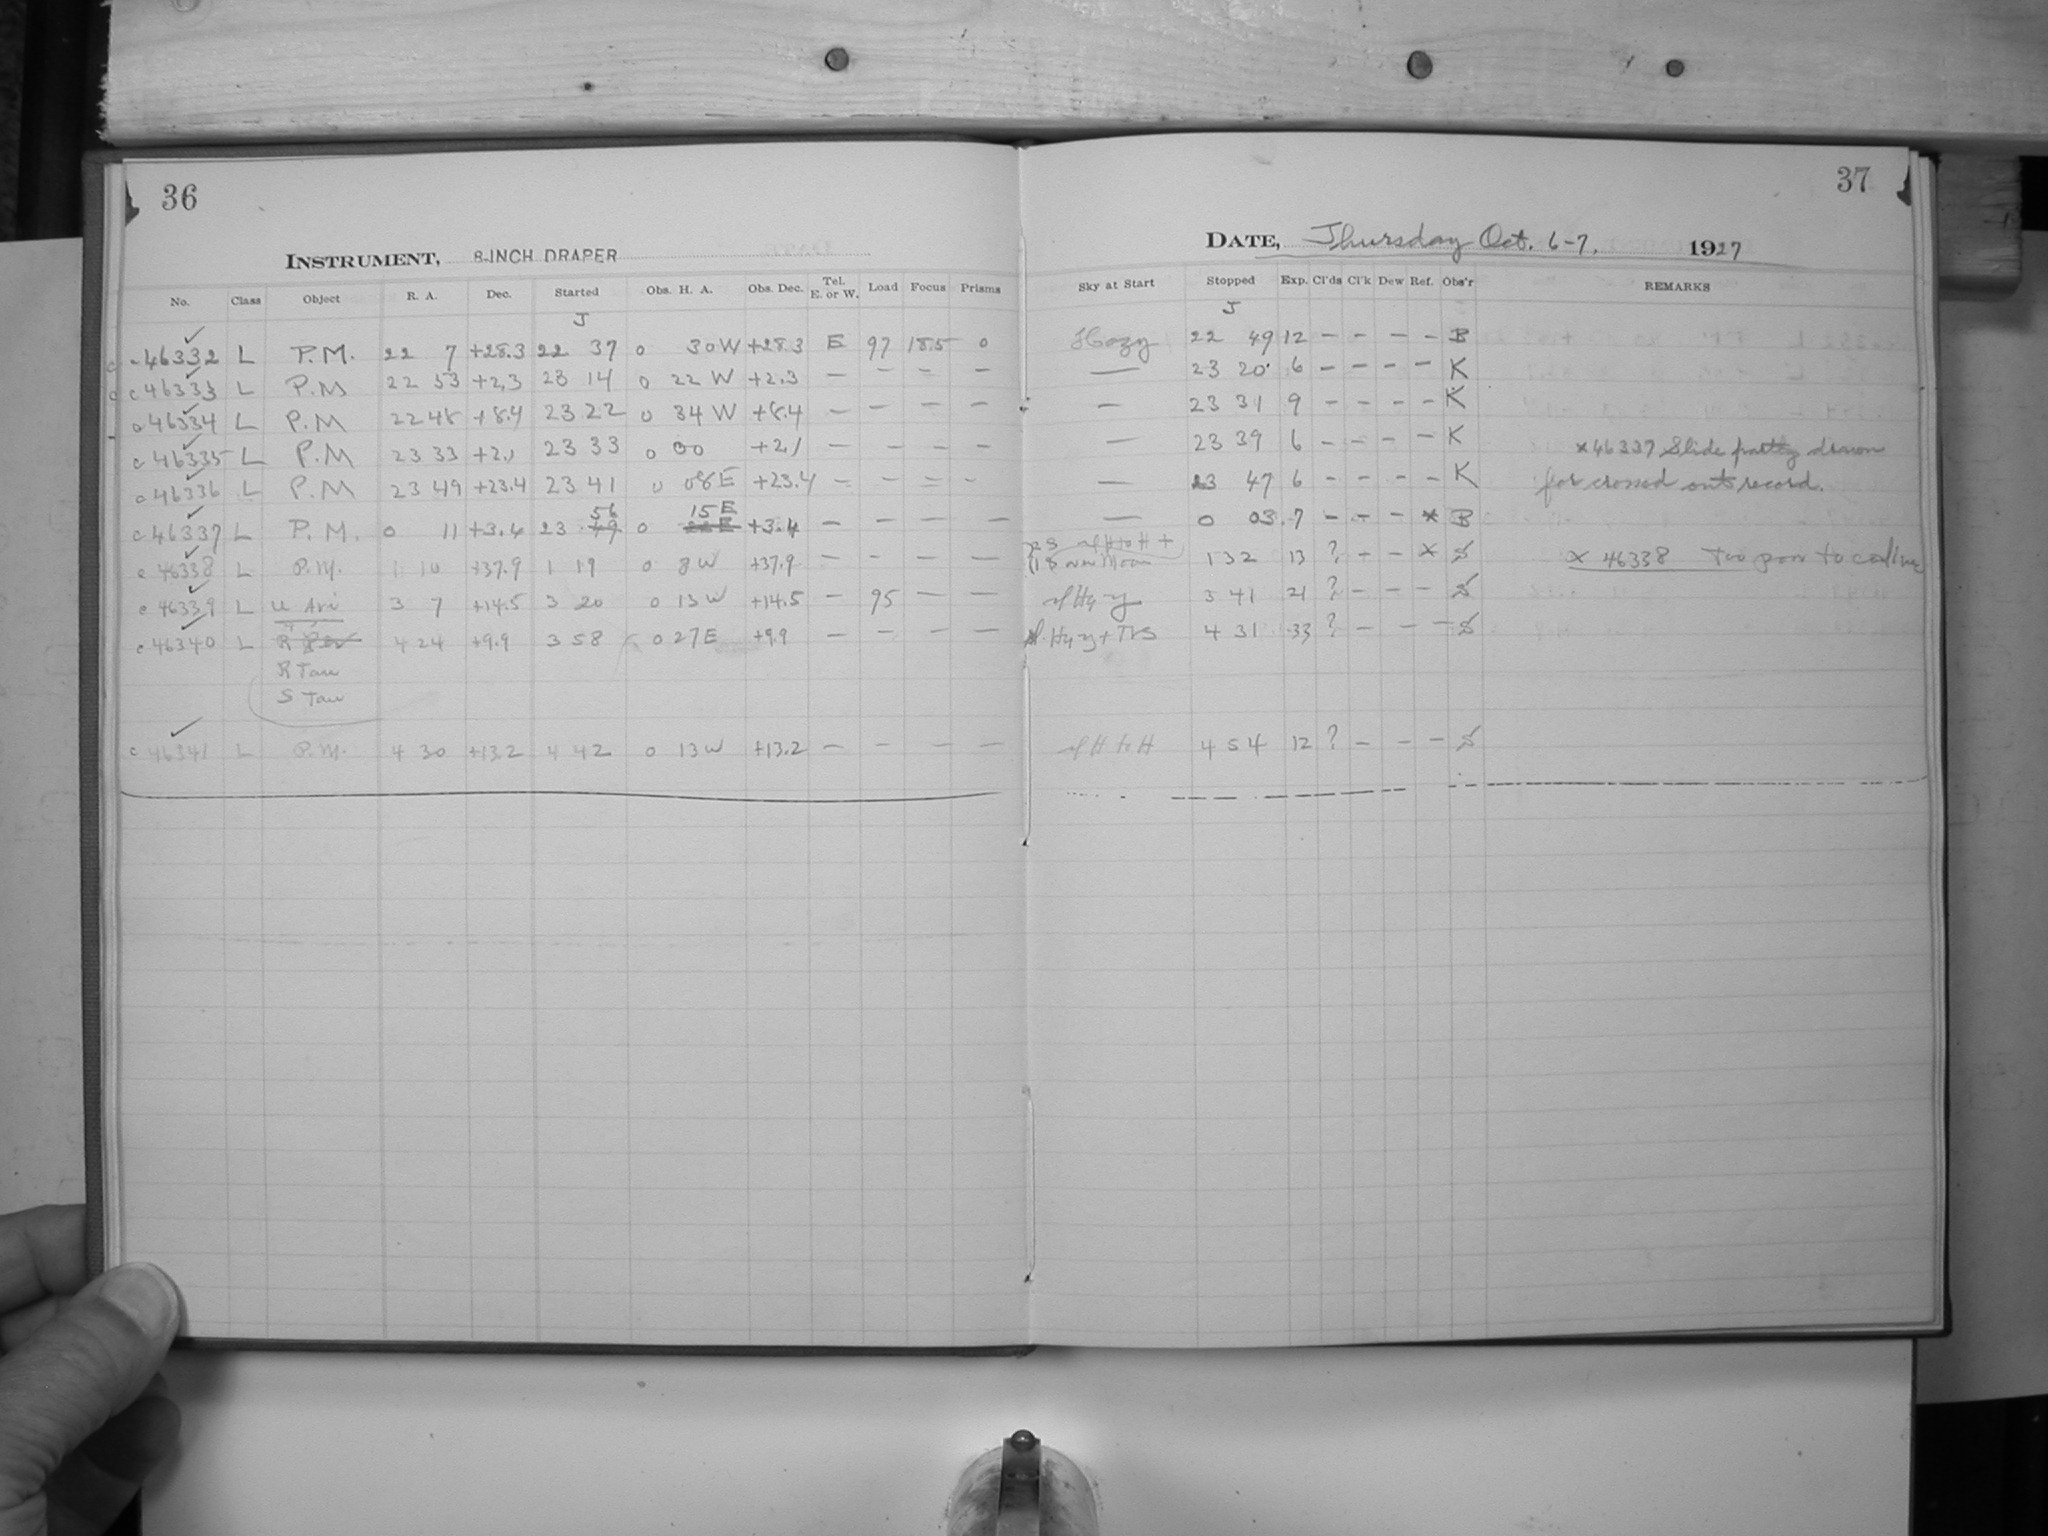 36
37
INSTRUMENT, 8-INCH DRAPER
DATE, Thursday Oct. 6-7, 1927
No. Class Object R. A. Dec. Started Obs. H. A. Obs. Dec. Tel. E. or W. Load Focus Prisms Sky at Start Stopped Exp. Cl'ds Cl'k Dew Ref. Obs'r REMARKS
J J
c 46332 L P.M. 22 7 +28.3 22 37 0 30W +28.3 E 97 18.5 0 Hazy 22 49 12 – – – – B
c 46333 L P.M 22 53 +2.3 23 14 0 22 W +2.3 – – – – – 23 20 6 – – – – K
c 46334 L P.M 22 48 +8.4 23 22 0 34 W +8.4 – – – – – 23 31 9 – – – – K
c 46335 L P.M 23 33 +2.1 23 33 0 00 +2.1 – – – – – 23 39 6 – – – – K
x 46337 Slide partly drawn
c 46336 L P.M 23 49 +23.4 23 41 0 08E +23.4 – – – – – 23 47 6 – – – – K
for crossed out record.
56 15E
c 46337 L P.M. 0 11 +3.4 23 49 0 22E +3.4 – – – – – 0 03 7 – – – x B
c 46338 L P.M. 1 10 +37.9 1 19 0 8W +37.9 – – – – H to H + Moon 1 32 13 ? – – x S x 46338 Too poor to
c 46339 L U Ari 3 7 +14.5 3 20 0 13W +14.5 – 95 – – 3 41 21 ? – – – S
c 46340 L R 4 24 +9.9 3 58 0 27E +9.9 – – – – 4 31 33 ? – – – S
R Tau
S Tau
c 46341 L P.M. 4 30 +13.2 4 42 0 13W +13.2 – – – – H to H 4 54 12 ? – – – S